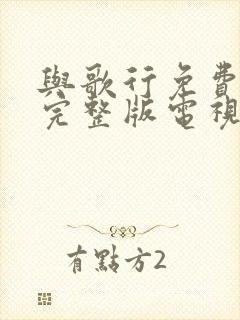 與歌行免費
完整版電視
有點方2